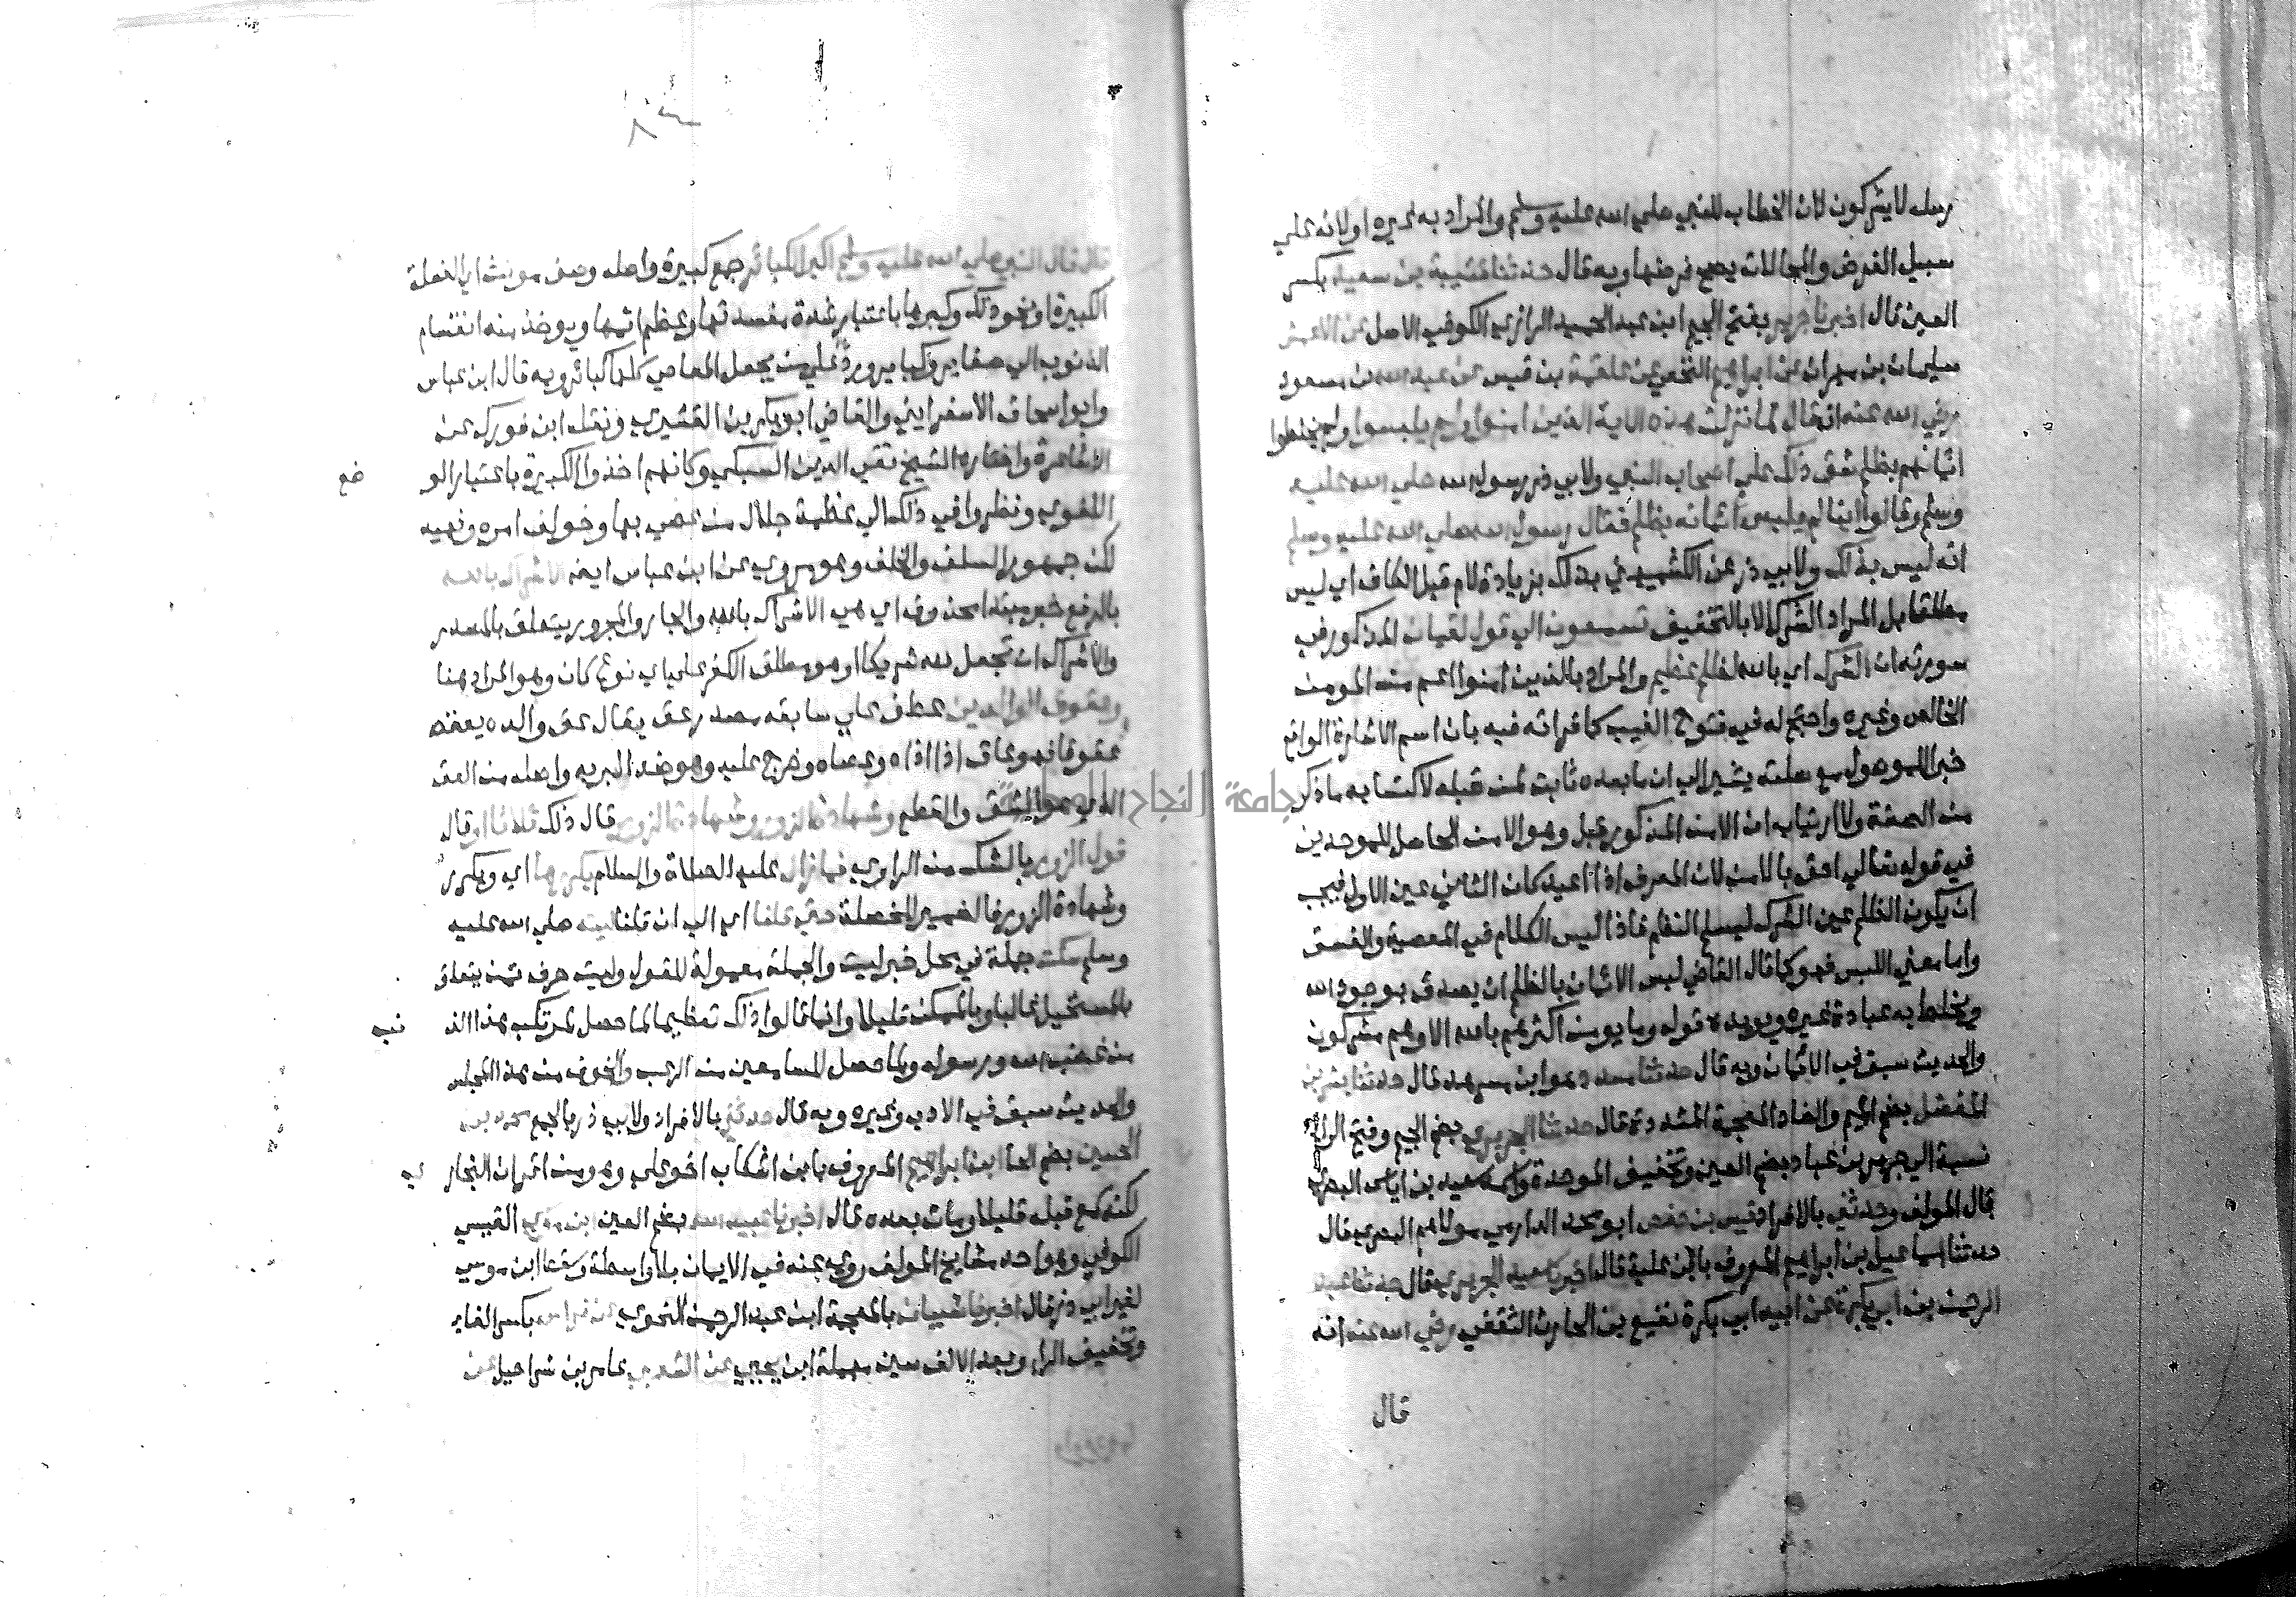 رسله لا يشركون لان الخطاب للنبي صلى الله عليه وسلم والمراد به غيره او لانه على
سبيل الفرض والمحالات يصح فرضها وبه قال حدثنا قتيبة بن سعيد بكسر
العين قال اخبرنا جرير بفتح الجيم ابن عبد الحميد الرازي الكوفي الاصل عن الاعمش
سليمان بن مهران عن ابراهيم النخعي عن علقمة بن قيس عن عبد الله بن مسعود
رضي الله عنه انه قال لما نزلت هذه الاية الذين امنوا ولم يلبسوا ولم يخلطوا
ايمانهم بظلم شق ذلك على اصحاب النبي ولابي ذر رسول الله صلي الله عليه
وسلم وقالوا اينا لم يلبس ايمانه بظلم فقال رسول الله صلي الله عليه وسلم
انه ليس بذلك ولابي ذر عن الكشميهني بذلك بزيادة لام قبل الكاف اي ليس
مطلقا بل المراد الشرك الا بالتخفيف تسمعون الي قول لقمان المذكور في
سورته ان الشرك اي بالله لظلم عظيم والمراد بالذين امنوا اعم من المومن
الخالص وغيره واحتج له في فتوح الغيب كما قراته فيه بان اسم الاشارة الواقع
خبرا للموصول مع صلته يشير الي ان ما بعده ثابت لمن قبله لاكتسابه ما ذكر
من الصفة ولا ارتياب ان الامن المذكور قبل وهو الامن الحاصل للموحدين
في قوله تعالي احق بالامن لان المعرف اذا اعيد كان الثاني عين الاول فيجب
ان يكون الظلم عين الشرك ليسلم النظم فاذا ليس الكلام في المعصية والفسق
واما معني اللبس فهو كما قال القاضي لبس الايمان بالظلم ان يصدق بوجود الله
ويخلط به عبادة غيره ويويده قوله وما يومن اكثرهم بالله الا وهم مشركون
والحديث سبق في الايمان وبه قال حدثنا مسدد هو ابن مسرهد قال حدثنا بشر بن
المفضل بضم الميم والضاد المعجمة المشددة قال حدثنا الجريري بضم الجيم وفتح الراء
نسبة الي جرير بن عباد بضم العين وتخفيف الموحدة واسمه سعيد بن اياس البصري
قال المولف وحدثني بالافراد قيس بن حفص ابو محمد الدارمي مولاهم البصري قال
حدثنا اسماعيل بن ابراهيم المعروف بابن علية قال اخبرنا سعيد الجريري قال حدثنا عبد
الرحمن بن ابي بكرة عن ابيه ابي بكرة نفيع بن الحارث الثقفي رضي الله عنه انه
قال
٨٤
قال قال النبي صلي الله عليه وسلم اكبر الكبائر جمع كبيرة واصله وصف مونث اي الفعلة
الكبيرة او نحو ذلك وكبرها باعتبار شدة مفسدتها وعظم اثمها ويوخذ منه انقسام
الذنوب الي صغاير وكباير ورد علي من يجعل المعاصي كلها كبائر وبه قال ابن عباس
وابو اسحاق الاسفرايني والقاضي ابو بكر بن القشيري ونقله ابن فورك عن
الاشاعرة واختاره الشيخ تقي الدين السبكي وكانهم اخذوا الكبيرة باعتبار الو
ضع
اللغوي ونظروا في ذلك الي عظمة جلال من عصي بها وخولف امره ونهيه
لكن جمهور السلف والخلف وهو مروي عن ابن عباس ايضا الاشراك بالله
بالرفع خبر مبتدا محذوف اي هي الاشراك بالله والجار والمجرور يتعلق بالمصدر
والاشراك ان تجعل لله شريكا او هو مطلق الكفر علي اي نوع كان وهو المراد هنا
وعقوق الوالدين عطف علي سابقه مصدر عق يقال عق والده يعقه
عقوقا فهو عاق اذا اذاه وعصاه وخرج عليه وهو ضد البر به واصله من العق
الذي هو الشق والقطع وشهادة الزور وشهادة الزور قال ذلك ثلاثا او قال
قول الزور بالشك من الراوي فما زال عليه الصلاة والسلام يكررها اي ويكرر
وشهادة الزور فالضمير للخصلة حتي قلنا اي الي ان قلنا ليته صلي الله عليه
وسلم سكت جملة في محل خبر ليت والجملة معمولة للقول وليت حرف تمن يتعلق
بالمستحيل غالبا وبالممكن قليلا وانما قالوا ذلك تعظيما لما حصل لمرتكب هذا الذ
نب
من غضب الله ورسوله ولما حصل للسامعين من الرعب والخوف من هذا المجلس
والحديث سبق في الادب وغيره وبه قال حدثني بالافراد ولابي ذر بالجمع محمد بن
الحسين بضم الحا ابن ابراهيم المعروف بابن اشكاب اخو علي وهو من اقران البخار
ي
لكنه سمع قبله قليلا ومات بعده قال اخبرنا عبيد الله بضم العين ابن موسي العبسي
الكوفي وهو احد مشايخ المولف روي عنه في الايمان بلا واسطة وسقط ابن موسي
لغير ابي ذر قال اخبرنا شيبان بالمعجمة ابن عبد الرحمن النحوي عن فراس بكسر الفاء
وتخفيف الراء وبعد الالف سين مهملة ابن يحيي عن الشعبي عامر بن شراحيل عن
جامعة النجاح